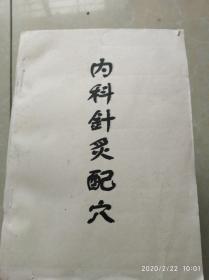 内科針灸配穴
2020/2/22 10:01